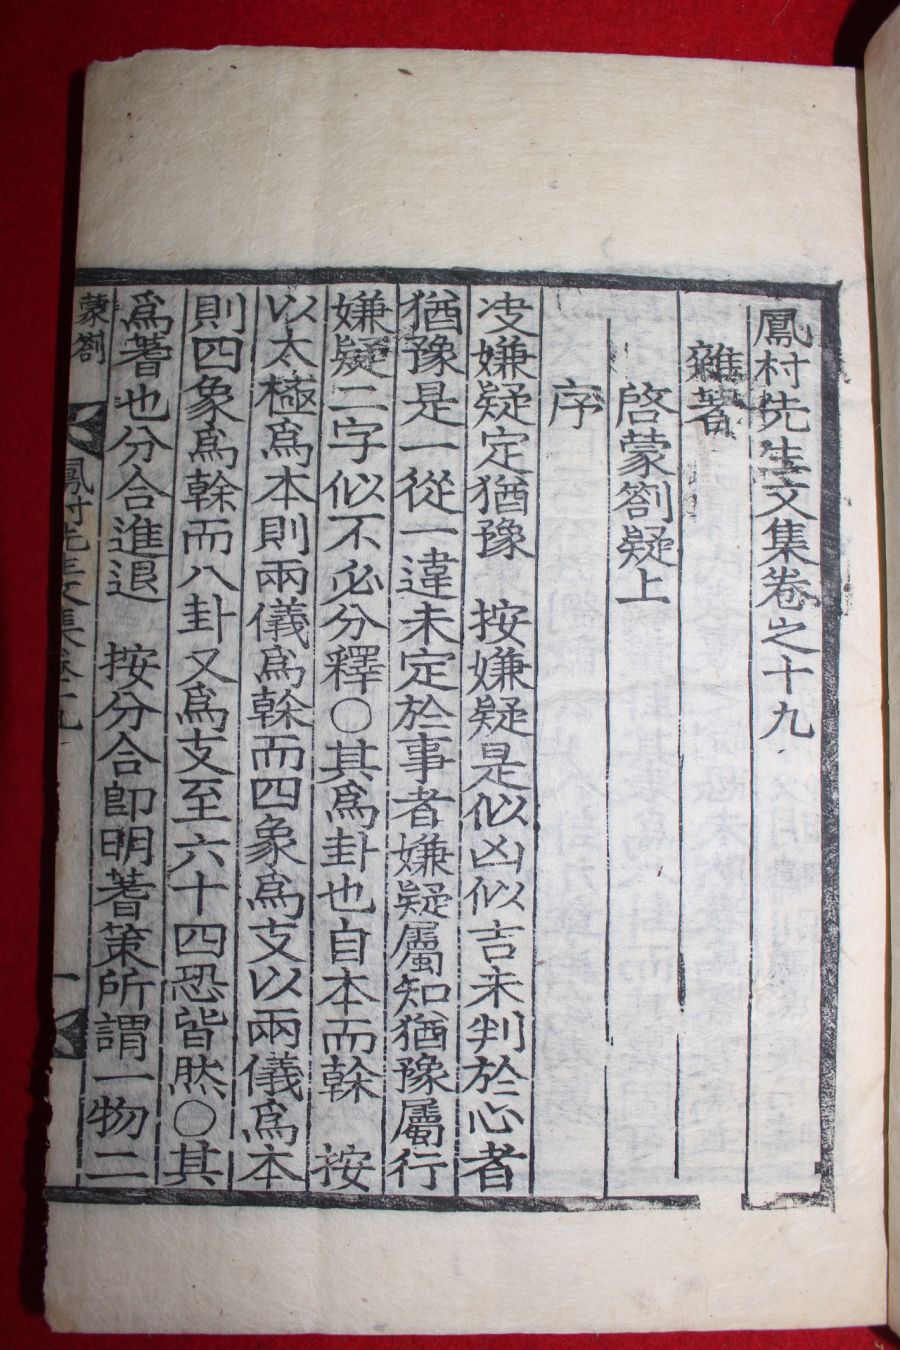 鳳村先生文集卷之十九
雜著
啓蒙劄疑上
序
决嫌疑定猶豫　按嫌疑是似凶似吉未判於心者
猶豫是一從一違未定於事者嫌疑屬知猶豫屬行
嫌疑二字似不必分釋〇其爲卦也自本而榦　按
以太極爲本則兩儀爲榦而四象爲支以兩儀爲本
則四象爲榦而八卦又爲支至六十四恐皆然〇其
爲蓍也分合進退　按分合卽明蓍策所謂一物二
蒙劄　鳳村先生文集卷十九　一